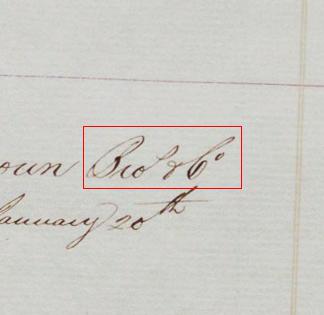 own Bro^s & C^o
January 20^th